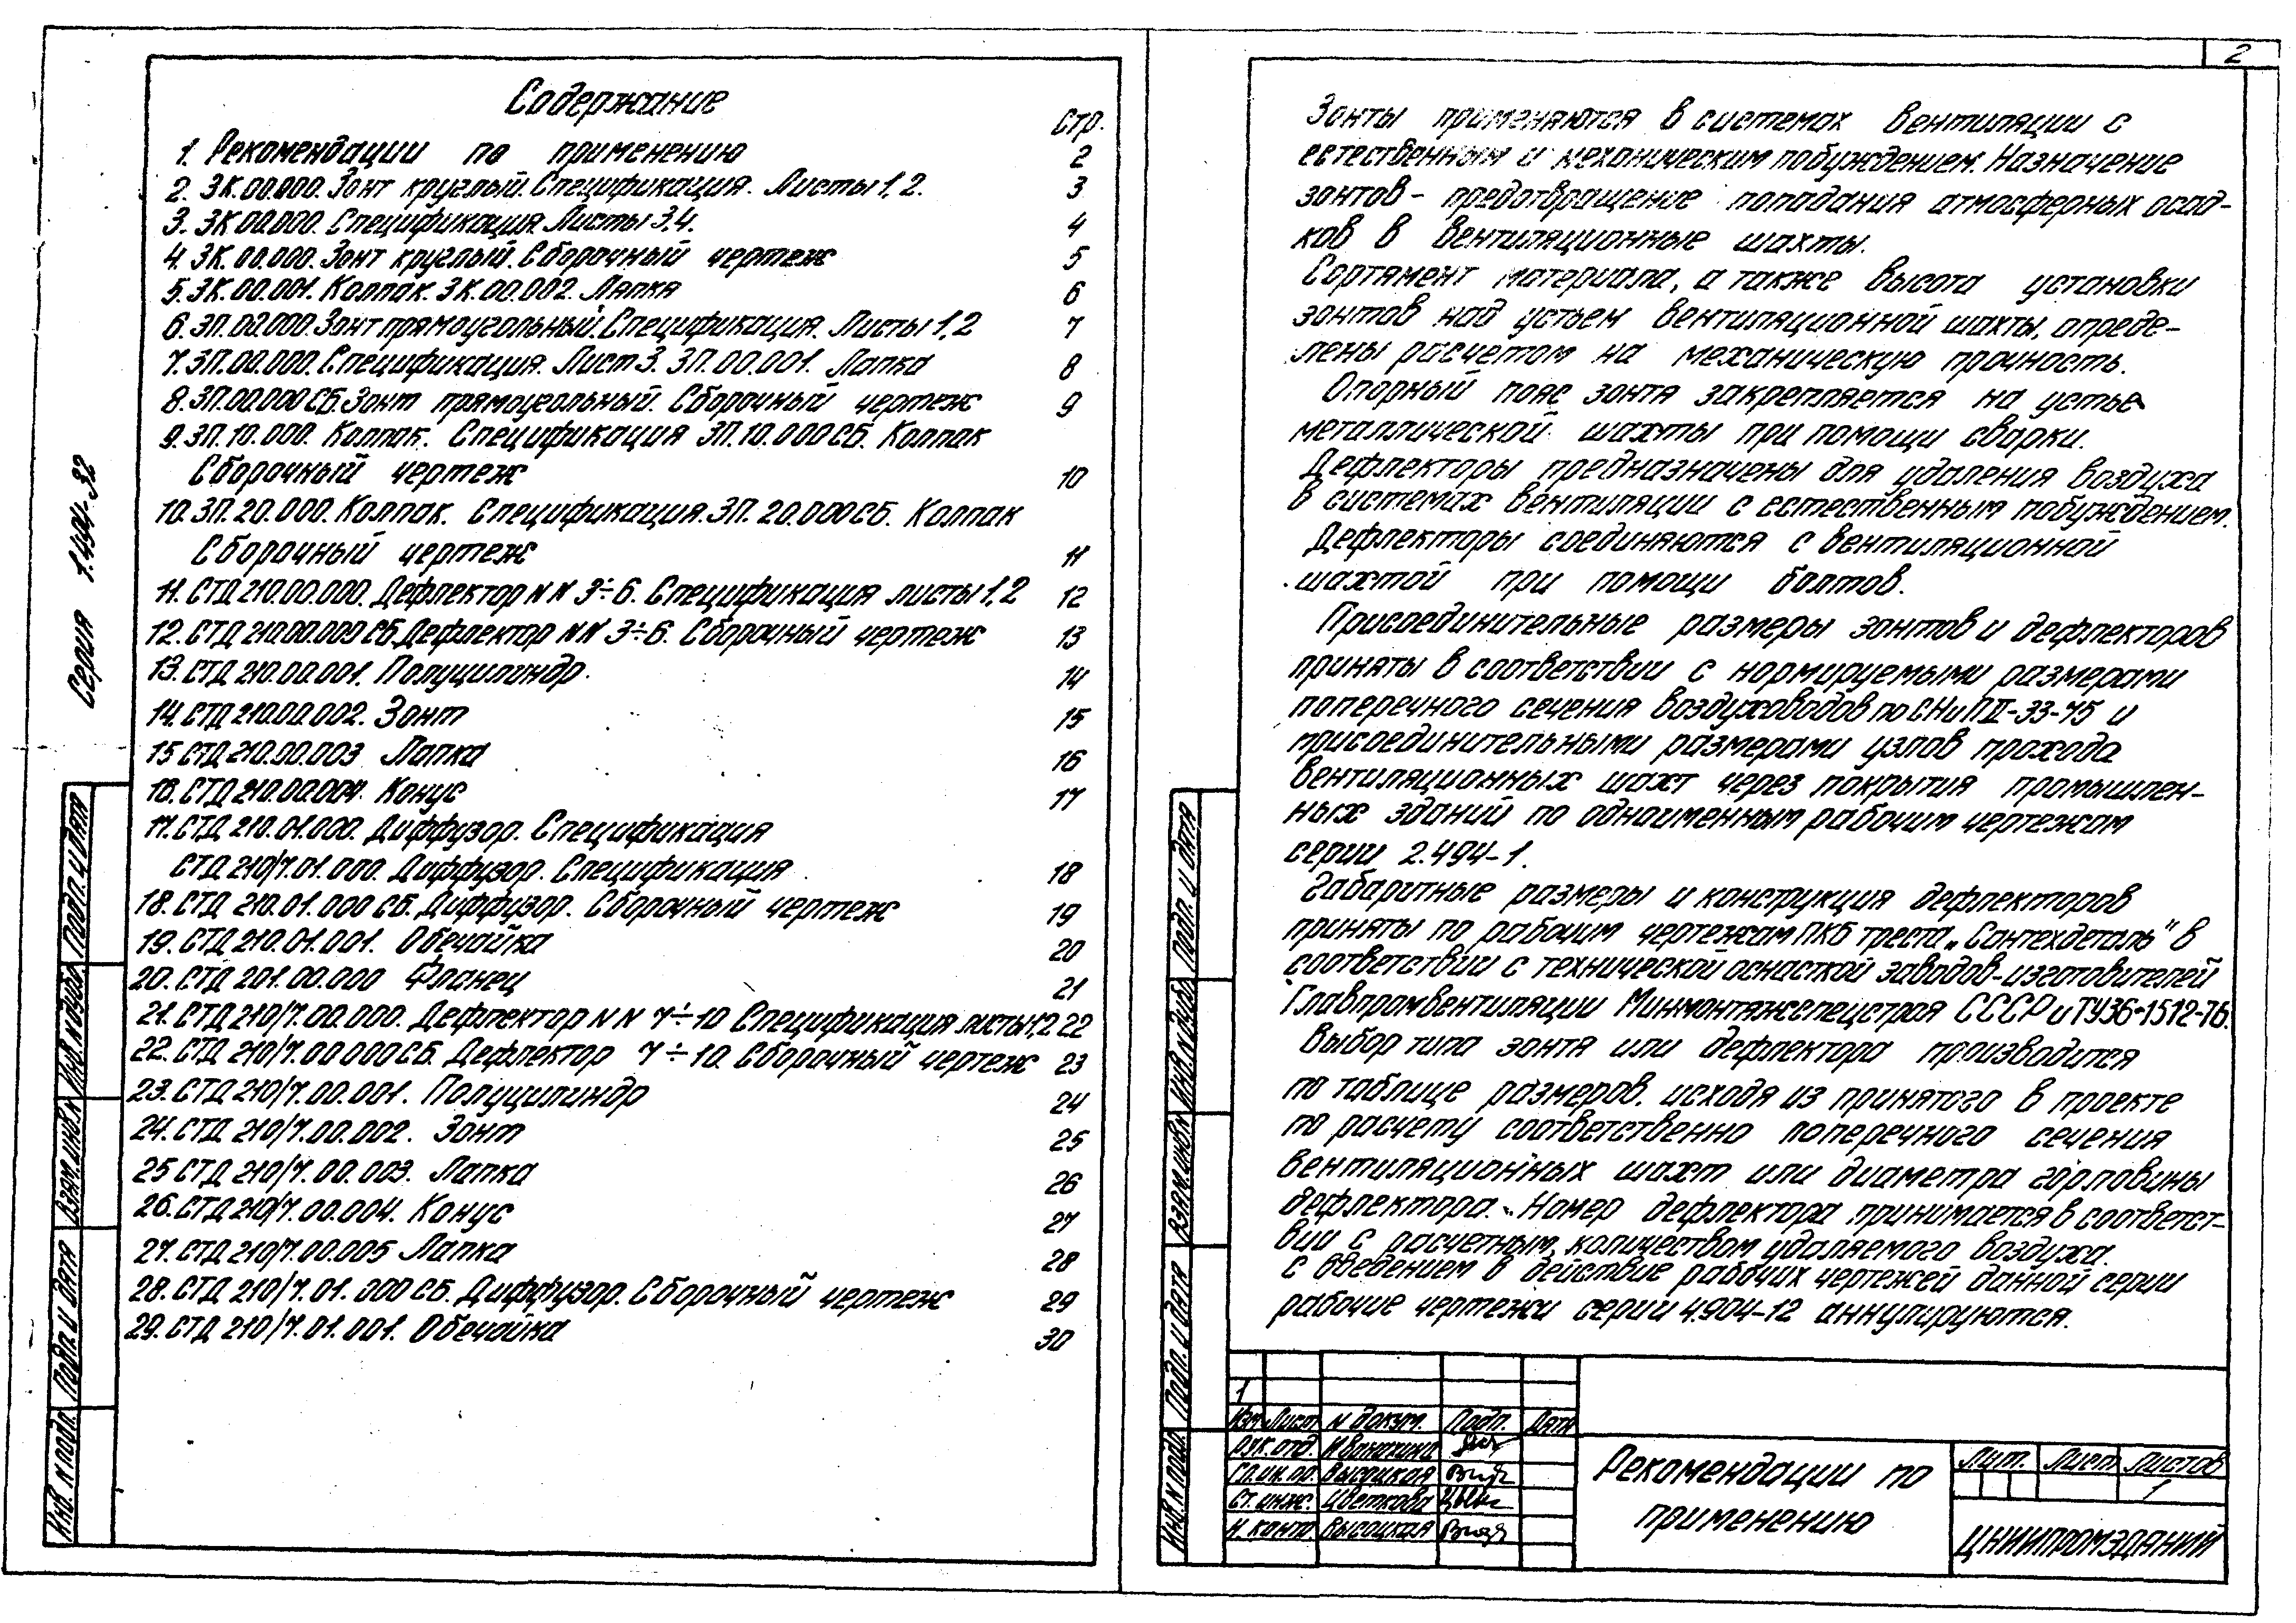 Содержание
Стр.
1. Рекомендации по применению 2
2. ЗК.00.000. Зонт круглый. Спецификация. Листы 1, 2. 3
3. ЗК 00.000. Спецификация. Листы 3.4. 4
4. ЗК. 00.000. Зонт круглый. Сборочный чертеж 5
5. ЗК.00.001. Колпак. ЗК.00.002. Лапка 6
6. ЗП.00.000. Зонт прямоугольный. Спецификация. Листы 1,2 7
7. ЗП.00.000. Спецификация. Лист 3. ЗП.00.001. Лапка 8
8. ЗП.00.000 СБ. Зонт прямоугольный. Сборочный чертеж 9
9. ЗП.10.000. Колпак. Спецификация ЗП.10.000СБ. Колпак
Сборочный чертеж 10
10. ЗП.20.000. Колпак. Спецификация. ЗП.20.000СБ. Колпак
Сборочный чертеж 11
11. СТД 210.00.000. Дефлектор NN 3÷6. Спецификация листы 1,2 12
12. СТД 210.00.000 СБ. Дефлектор NN 3÷6. Сборочный чертеж 13
13. СТД 210.00.001. Полуцилиндр. 14
14. СТД 210.00.002. Зонт 15
15 СТД 210.00.003 Лапка 16
16. СТД 210.00.004. Конус 17
17. СТД 210.01.000. Диффузор. Спецификация
СТД 210/7.01.000. Диффузор. Спецификация 18
18. СТД 210.01.000 СБ. Диффузор. Сборочный чертеж 19
19. СТД 210.01.001. Обечайка 20
20. СТД 201.00.000 Фланец 21
21. СТД 210/7.00.000. Дефлектор NN 7÷10 Спецификация листы 1,2 22
22. СТД 210/7.00 000СБ. Дефлектор 7÷10. Сборочный чертеж 23
23. СТД 210/7.00.001. Полуцилиндр 24
24. СТД 210/7.00.002. Зонт 25
25 СТД 210/7.00.003. Лапка 26
26. СТД 210/7.00.004. Конус 27
27. СТД 210/7.00.005 Лапка 28
28. СТД 210/7.01.000 СБ. Диффузор. Сборочный чертеж 29
29. СТД 210/7.01.001. Обечайка 30
Серия 1.494-32
Подп. и дата
Инв. N дубл.
Взам. инв. N
Подп. и дата
Инв. N подл.
2
Зонты применяются в системах вентиляции с
естественным и механическим побуждением. Назначение
зонтов – предотвращение попадания атмосферных осад-
ков в вентиляционные шахты.
Сортамент материала, а также высота установки
зонтов над устьем вентиляционной шахты, опреде-
лены расчетом на механическую прочность.
Опорный пояс зонта закрепляется на устье
металлической шахты при помощи сварки.
Дефлекторы предназначены для удаления воздуха
в системах вентиляции с естественным побуждением.
Дефлекторы соединяются с вентиляционной
шахтой при помощи болтов.
Присоединительные размеры зонтов и дефлекторов
приняты в соответствии с нормируемыми размерами
поперечного сечения воздуховодов по СНиП II-33-75 и
присоединительными размерами узлов прохода
вентиляционных шахт через покрытия промышлен-
ных зданий по одноименным рабочим чертежам
серии 2.494-1.
Габаритные размеры и конструкция дефлекторов
приняты по рабочим чертежам ПКБ треста „Сантехдеталь" в
соответствии с технической оснасткой заводов-изготовителей
Главпромвентиляции Минмонтажспецстроя СССР и ТУ36-1512-76.
Выбор типа зонта или дефлектора производится
по таблице размеров, исходя из принятого в проекте
по расчету соответственно поперечного сечения
вентиляционных шахт или диаметра горловины
дефлектора. Номер дефлектора принимается в соответст-
вии с расчетным количеством удаляемого воздуха.
С введением в действие рабочих чертежей данной серии
рабочие чертежи серии 4.904-12 аннулируются.
Подп. и дата
Инв. N дубл.
Взам. инв. N
Подп. и дата
Инв. N подл.
1
Изм. Лист N докум. Подп. Дата
Рук. отд.
Гл. ин. пр. Высоцкая
Ст. инж. Цветкова
Н. контр. Высоцкая
Рекомендации по
применению
Лит. Лист Листов
1
ЦНИИПРОМЗДАНИЙ